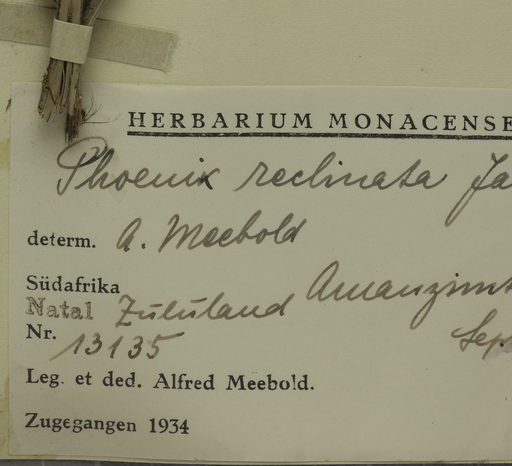 HERBARIUM MONACENSE
Phoenix reclinata Ja
determ. A. Meebold
Südafrika
Natal Zululand Amanzimt
Nr. 13135 Sep
Leg. et ded. Alfred Meebold.
Zugegangen 1934